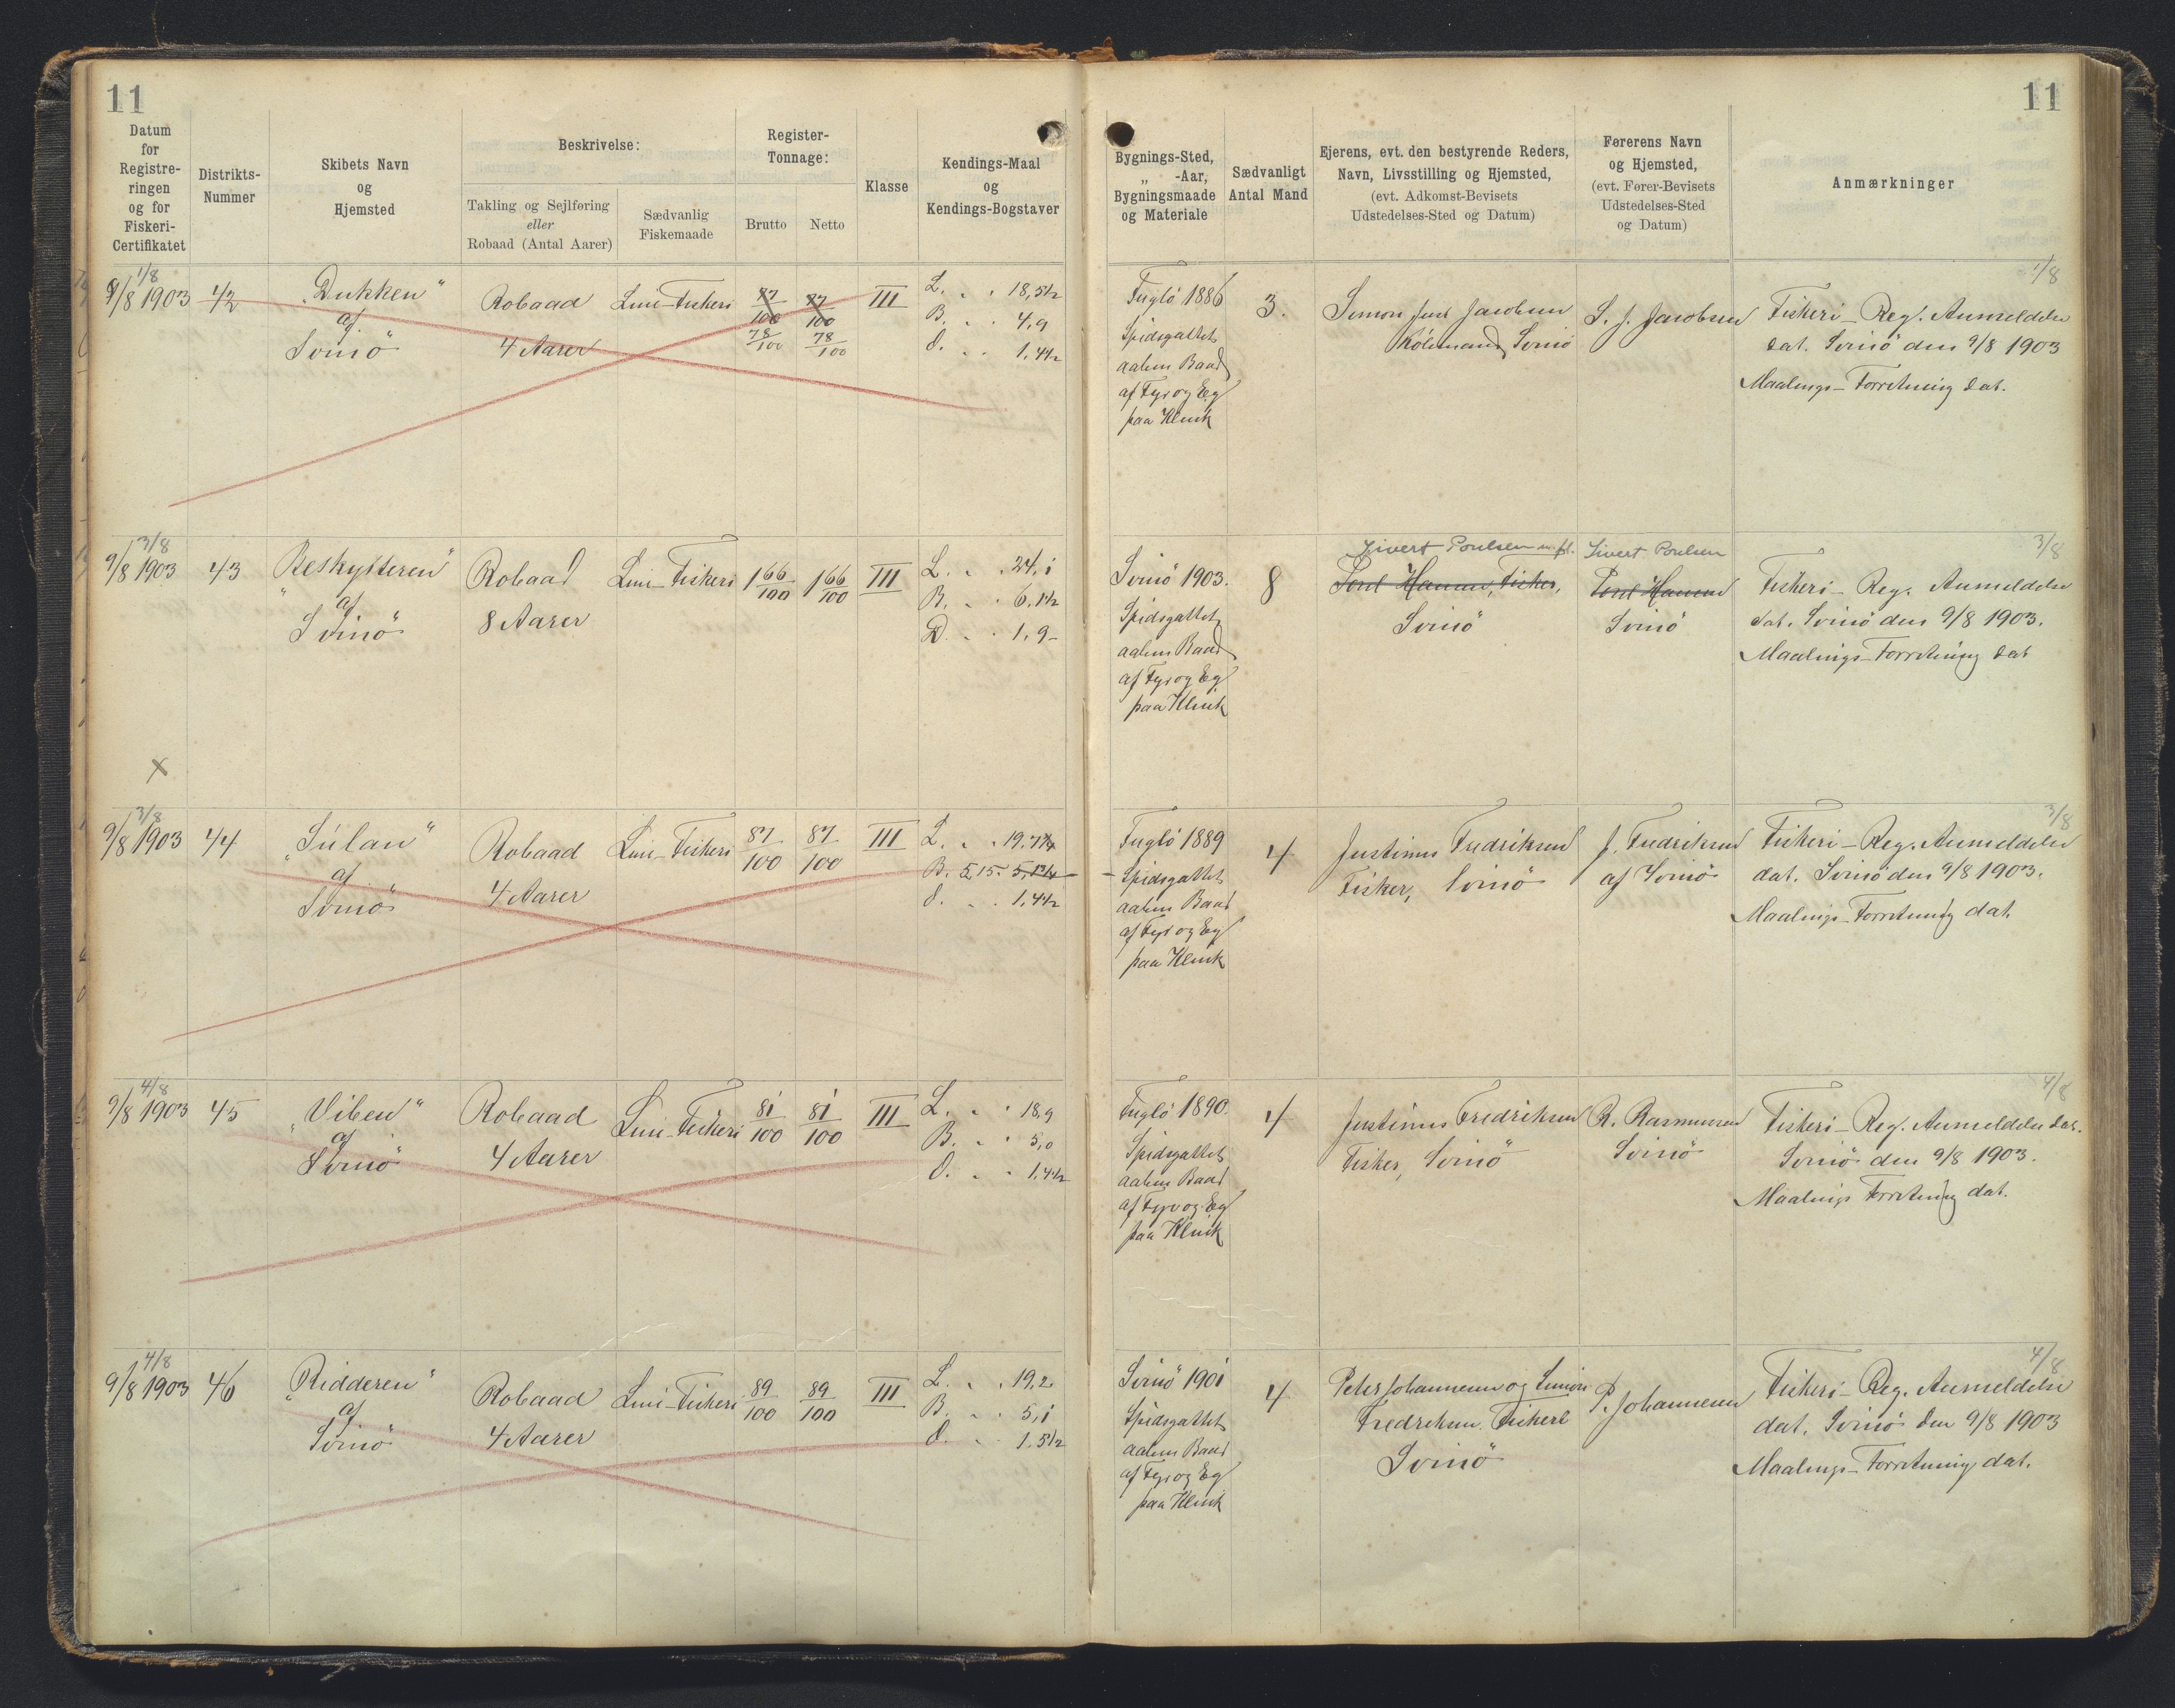 11
11
Datum
for
Registre-
ringen
og for
Fiskeri-
Certifikatet
Distrikts-
Nummer
Skibets Navn
og
Hjemsted
Beskrivelse:
Takling og Sejlføring
eller
Robaad (Antal Aarer)
Sædvanlig
Fiskemaade
Register-
Tonnage:
Brutto
Netto
Klasse
Kendings-Maal
og
Kendings-Bogstaver
Bygnings-Sted,
„ -Aar,
Bygningsmaade
og Materiale
Sædvanligt
Antal Mand
Ejerens, evt. den bestyrende Reders,
Navn, Livsstilling og Hjemsted,
(evt. Adkomst-Bevisets
Udstedelses-Sted og Datum)
Førerens Navn
og Hjemsted,
(evt. Fører-Bevisets
Udstedelses-Sted
og Datum)
Anmærkninger
1/8
9/8 1903
42
„Dukken"
af
Svinö
Robaad
4 Aarer
Lini-Fiskeri
87/100
78/100
87/100
78/100
III
L. . . 18,5½
B. . . 4,9
d. . . 1,4½
Fuglö 1886
Spidsgattet
aaben Baad
af Fyr og Eg
paa Klink
3.
Simon Just Jacobsen
Svinö
S. J. Jacobsen
1/8
Fiskeri-Reg. Anmeldelse
dat. Svinö den 9/8 1903
Maalings-Forretning dat.
3/8
9/8 1903
43
„Beskytteren"
af
Svinö
Robaad
8 Aarer
Lini-Fiskeri
1 66/100
1 66/100
III
L. . . 24,1
B. . . 6,1½
D. . . 1,9-
Svinö 1903.
Spidsgattet
aaben Baad
af Fyr og Eg
paa Klink
8
Sivert Poulsen m. fl.
Poul Hansen, Fisker,
Svinö
Sivert Poulsen
Poul Hansen
Svinö
3/8
Fiskeri-Reg. Anmeldelse
dat. Svinö den 9/8 1903.
Maalings-Forretning dat
X
3/8
9/8 1903
44
„Súlan"
af
Svinö
Robaad
4 Aarer
Lini-Fiskeri
87/100
87/100
III
L. . . 19,7¾
B. 5,15. 5,1¾
d. . . 1,4½
Fuglö 1889
Spidsgattet
aaben Baad
af Fyr og Eg
paa Klink
4
Justinus Fredriksen
Fisker, Svinö
J. Fredriksen
af Svinö
3/8
Fiskeri-Reg. Anmeldelse
dat. Svinö den 9/8 1903.
Maalings-Forretning dat.
4/8
9/8 1903
45
„Viben"
af
Svinö
Robaad
4 Aarer
Lini-Fiskeri
81/100
81/100
III
L. . . 18,9
B. . . 5,0
d. . . 1,4½
Fuglö 1890.
Spidsgattet
aaben Baad
af Fyr og Eg
paa Klink
4
Justinus Fredriksen
Fisker, Svinö
R. Rasmussen
Svinö
4/8
Fiskeri-Reg. Anmeldelse dat.
Svinö den 9/8 1903.
Maalings Forretning dat.
4/8
9/8 1903
46
„Ridderen"
af
Svinö
Robaad
4 Aarer
Lini-Fiskeri
89/100
89/100
III
L. . . 19,2
B. . . 5,1
d. . . 1,5½
Svinö 1901
Spidsgattet
aaben Baad
af Fyr og Eg
paa Klink
4
Peter Johannesen og Simon
Fredriksen. Fiskere
Svinö
P. Johannesen
4/8
Fiskeri-Reg. Anmeldelse
dat. Svinö den 9/8 1903
Maalings-Forretning dat.